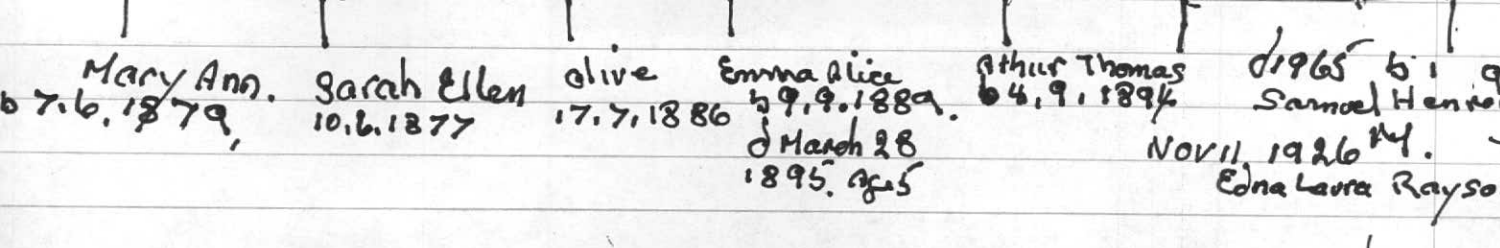 Mary Ann.
b 7.6.1879,
Sarah Ellen
10.6.1877
Olive
17.7.1886
Emma Alice
b 9.9.1889.
d March 28
1895. Age 5
Arthur Thomas
b 4.9.1894
d 1965 b 1
Samuel
Nov 11, 1926 M.
Edna Laura Rayso